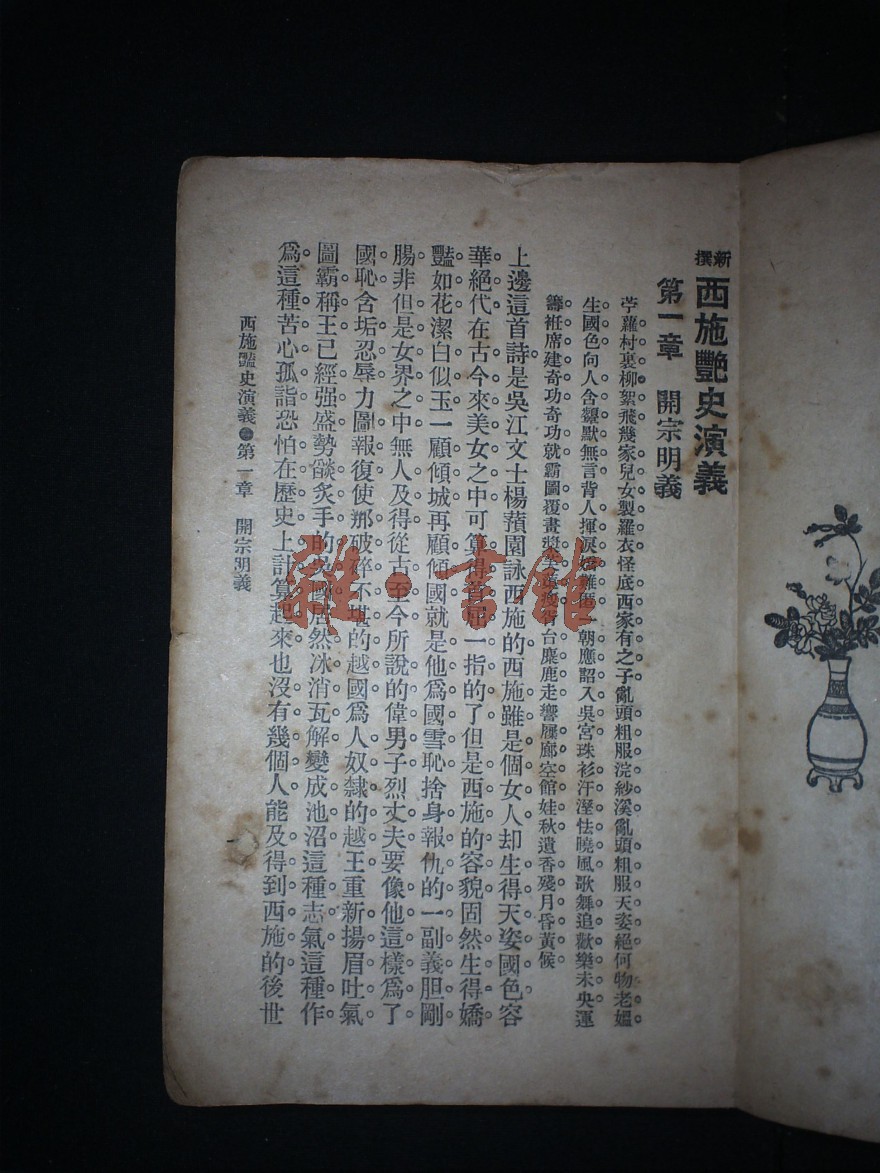 新撰
西施艷史演義
第一章　開宗明義
苧蘿村裏柳絮飛幾家兒女製羅衣怪底西家有之子亂頭粗服浣紗溪亂頭粗服天姿絕何物老媼
生國色向人含顰默無言背人揮淚嬌難匿一朝應詔入吳宮珠衫汗溼怯曉風歌舞追歡樂未央運
籌袵席建奇功奇功就霸圖覆畫槳台麋鹿走響屧廊空館娃秋遺香殘月昏黃候
上邊這首詩是吳江文士楊蘋園詠西施的西施雖是個女人却生得天姿國色容
華絕代在古今來美女之中可算得首屈一指的了但是西施的容貌固然生得嬌
豔如花潔白似玉一顧傾城再顧傾國就是他爲國雪恥捨身報仇的一副義胆剛
腸非但是女界之中無人及得從古至今所說的偉男子烈丈夫要像他這樣爲了
國恥含垢忍辱力圖報復使那破碎不堪的越國爲人奴隸的越王重新揚眉吐氣
圖霸稱王已經强盛勢燄炙手的吳國居然冰消瓦解變成池沼這種志氣這種作
爲這種苦心孤詣恐怕在歷史上計算起來也沒有幾個人能及得到西施的後世
西施豔史演義　第一章　開宗明義
雜·書館